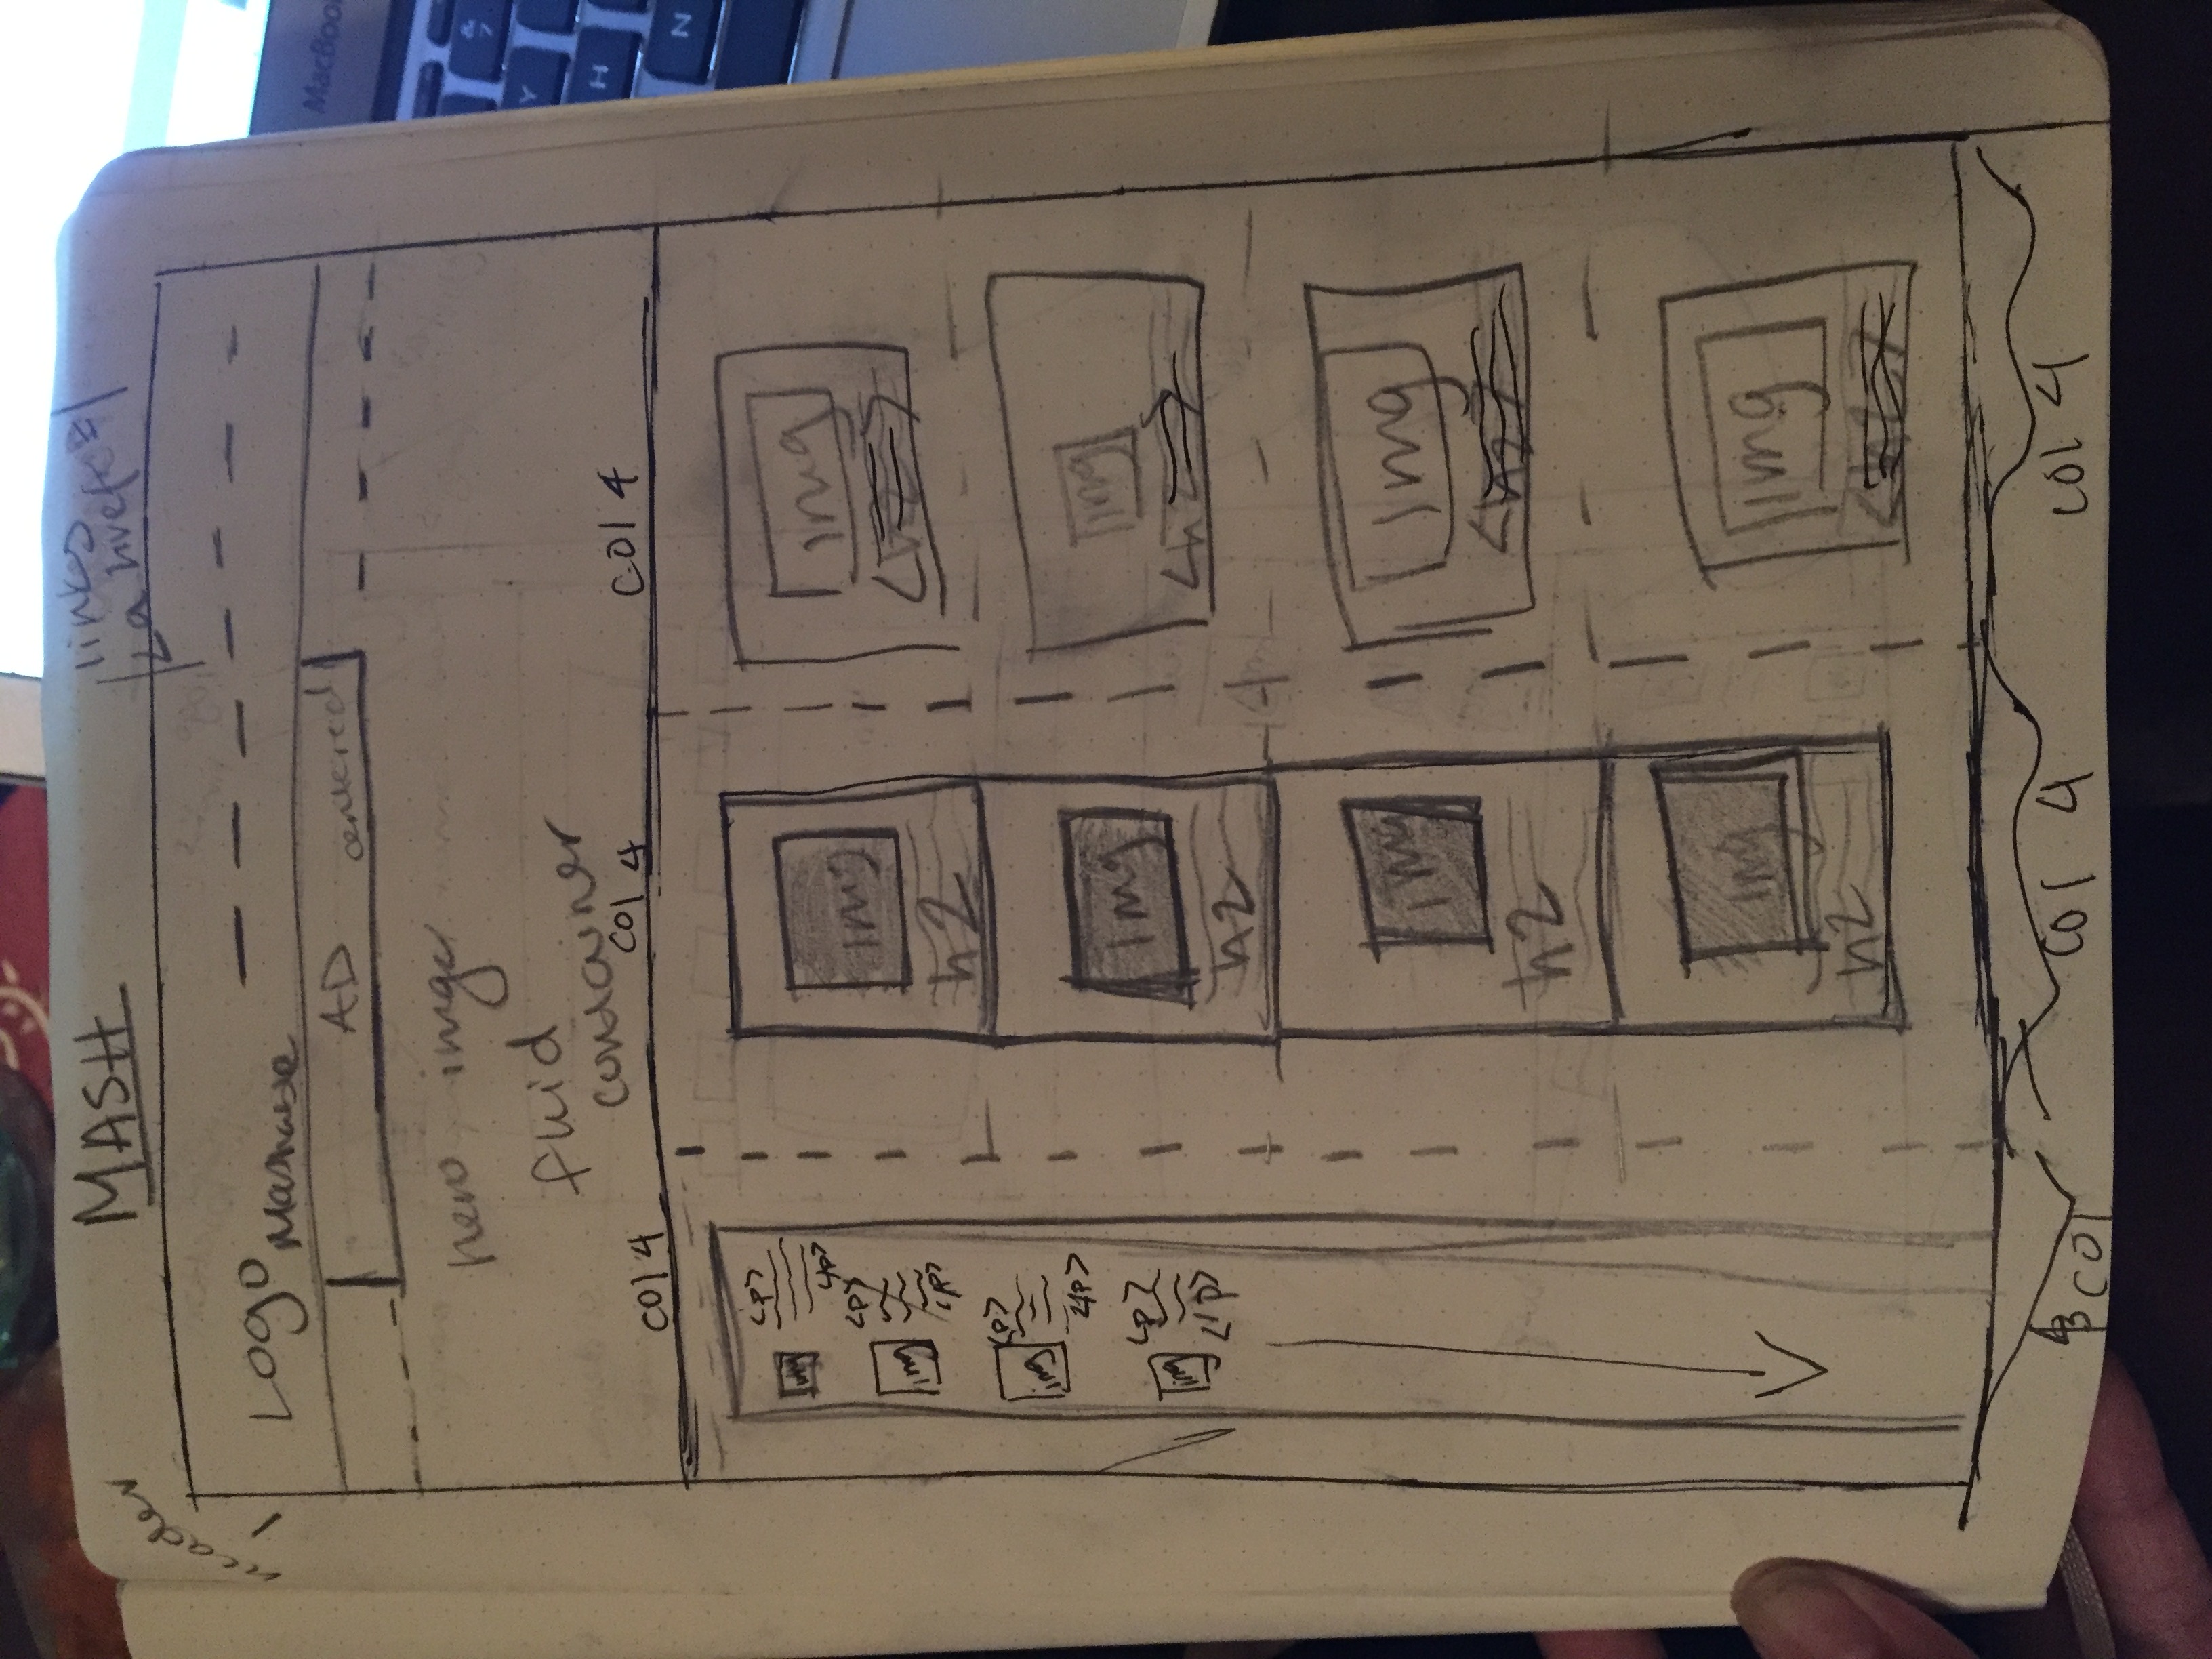 MASH
links
<a href=
header
Logo
AD centered
hero img
fluid
container
col 4
col 4
col 4
<p>
img
</p>
<p>
img
</p>
<p>
img
</p>
<p>
img
</p>
img
h2
img
h2
img
h2
img
h2
img
<h2>
img
<h2
img
<h2>
img
<h2>
col
col 4
col 4
MacBoo
&
7
Y
H
N